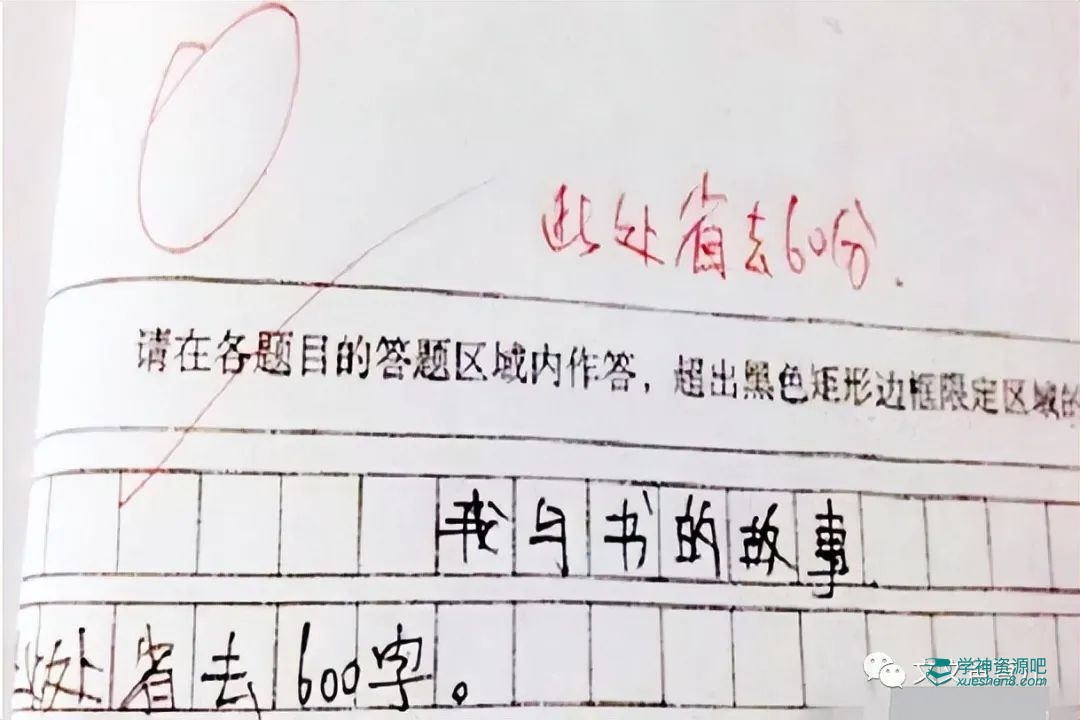 此处省去60分.
请在各题目的答题区域内作答，超出黑色矩形边框限定区域的
我与书的故事
此处省去600字。
学神资源吧
xueshen8.com